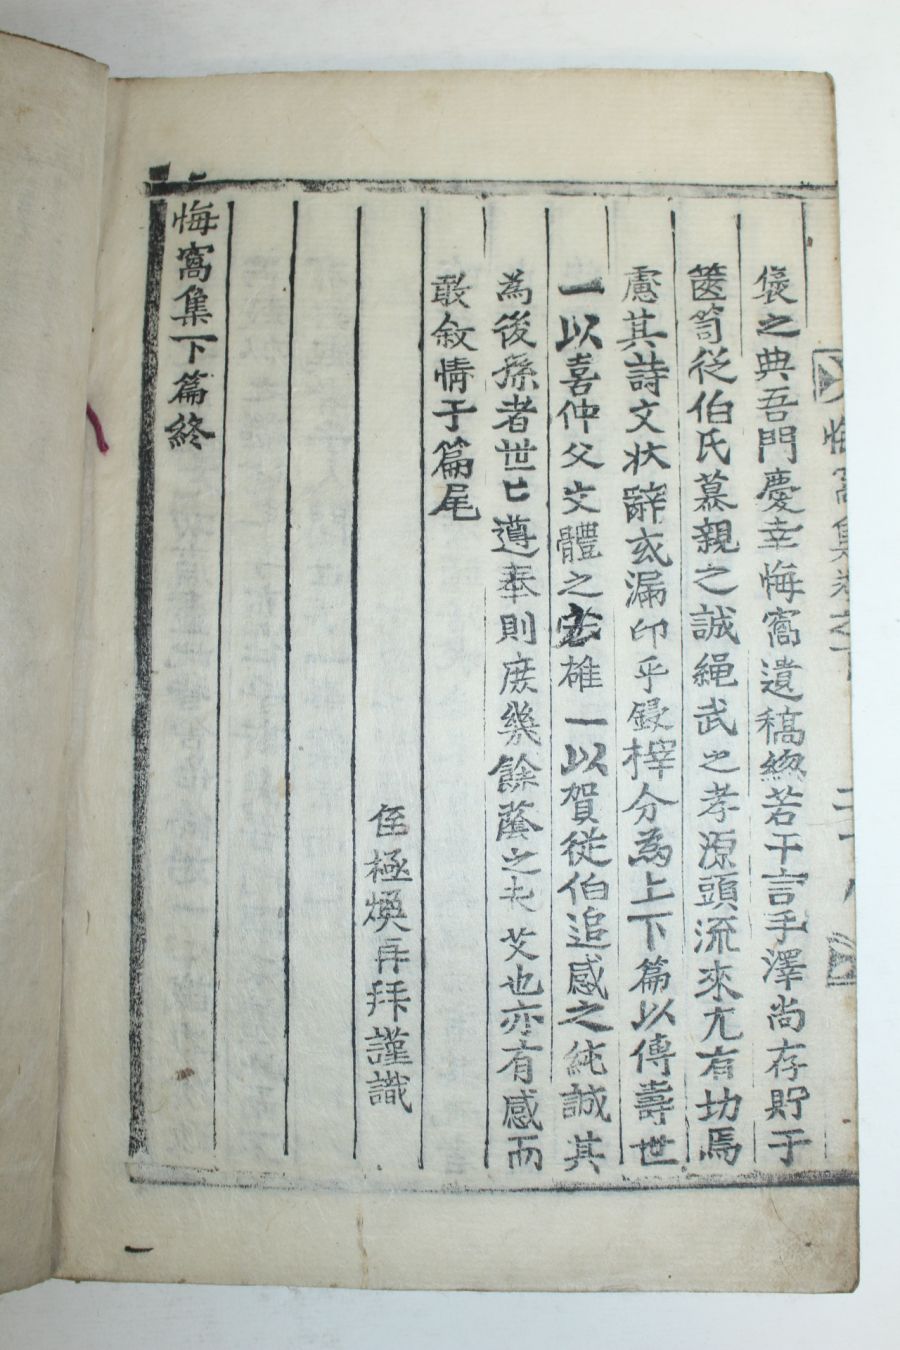 悔窩集卷之下
褒之典吾門慶幸悔窩遺稿緫若干言手澤尚存貯于
篋笥從伯氏慕親之誠繩武之孝源頭流來尤有功焉
慮其詩文状辭或漏印乎鋟梓分為上下篇以傳壽世
一以喜仲父文體之宏雄一以賀從伯追感之純誠其
為後孫者世世遵奉則庶幾餘蔭之艾也亦有感而
敢敘情于篇尾
侄極煥再拜謹識
悔窩集下篇終